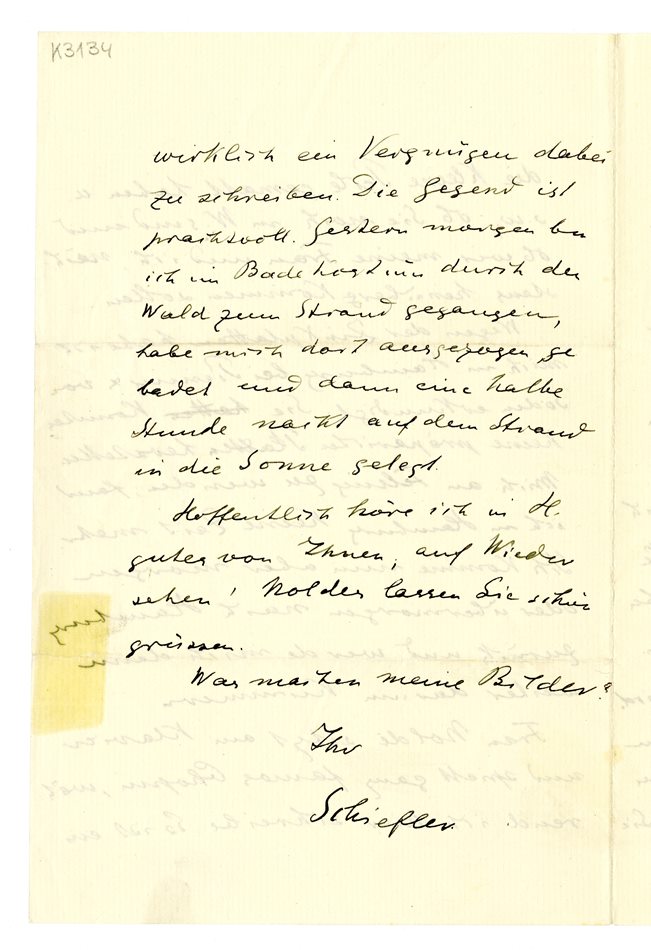 K3134
wirklich ein Vergnügen dabei
zu schreiben. Die Gegend ist
prachtvoll. Gestern morgen bin
ich im Badekostüm durch den
Wald zum Strand gegangen,
habe mich dort ausgezogen, ge
badet und dann eine halbe
Stunde nackt auf dem Strand
in die Sonne gelegt.
Hoffentlich höre ich in H.
gutes von Ihnen, auf Wieder
sehen! Noldes lassen Sie schön
grüssen.
Was machen meine Bilder?
Ihr
Schiefler.